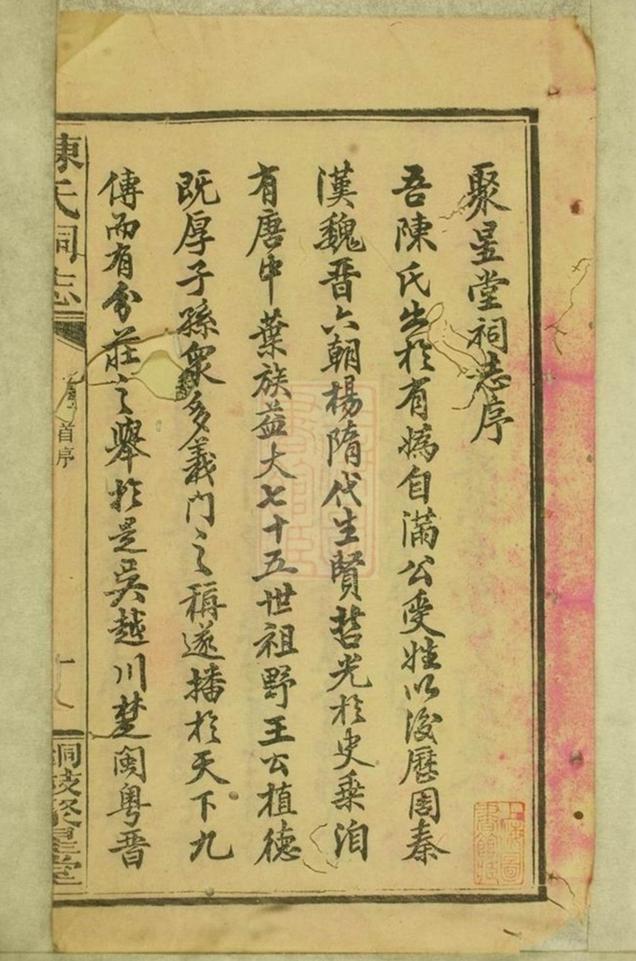 聚星堂祠志序
吾陳氏出於有媯自滿公受姓以後歷周秦
漢魏晉六朝楊隋代生賢哲光於史乘洎
有唐中葉族益大七十五世祖野王公植德
既厚子孫衆多義門之稱遂播於天下九
傳而有分莊之舉於是吳越川楚閩粵晉
陳氏祠志
首序
聚星堂